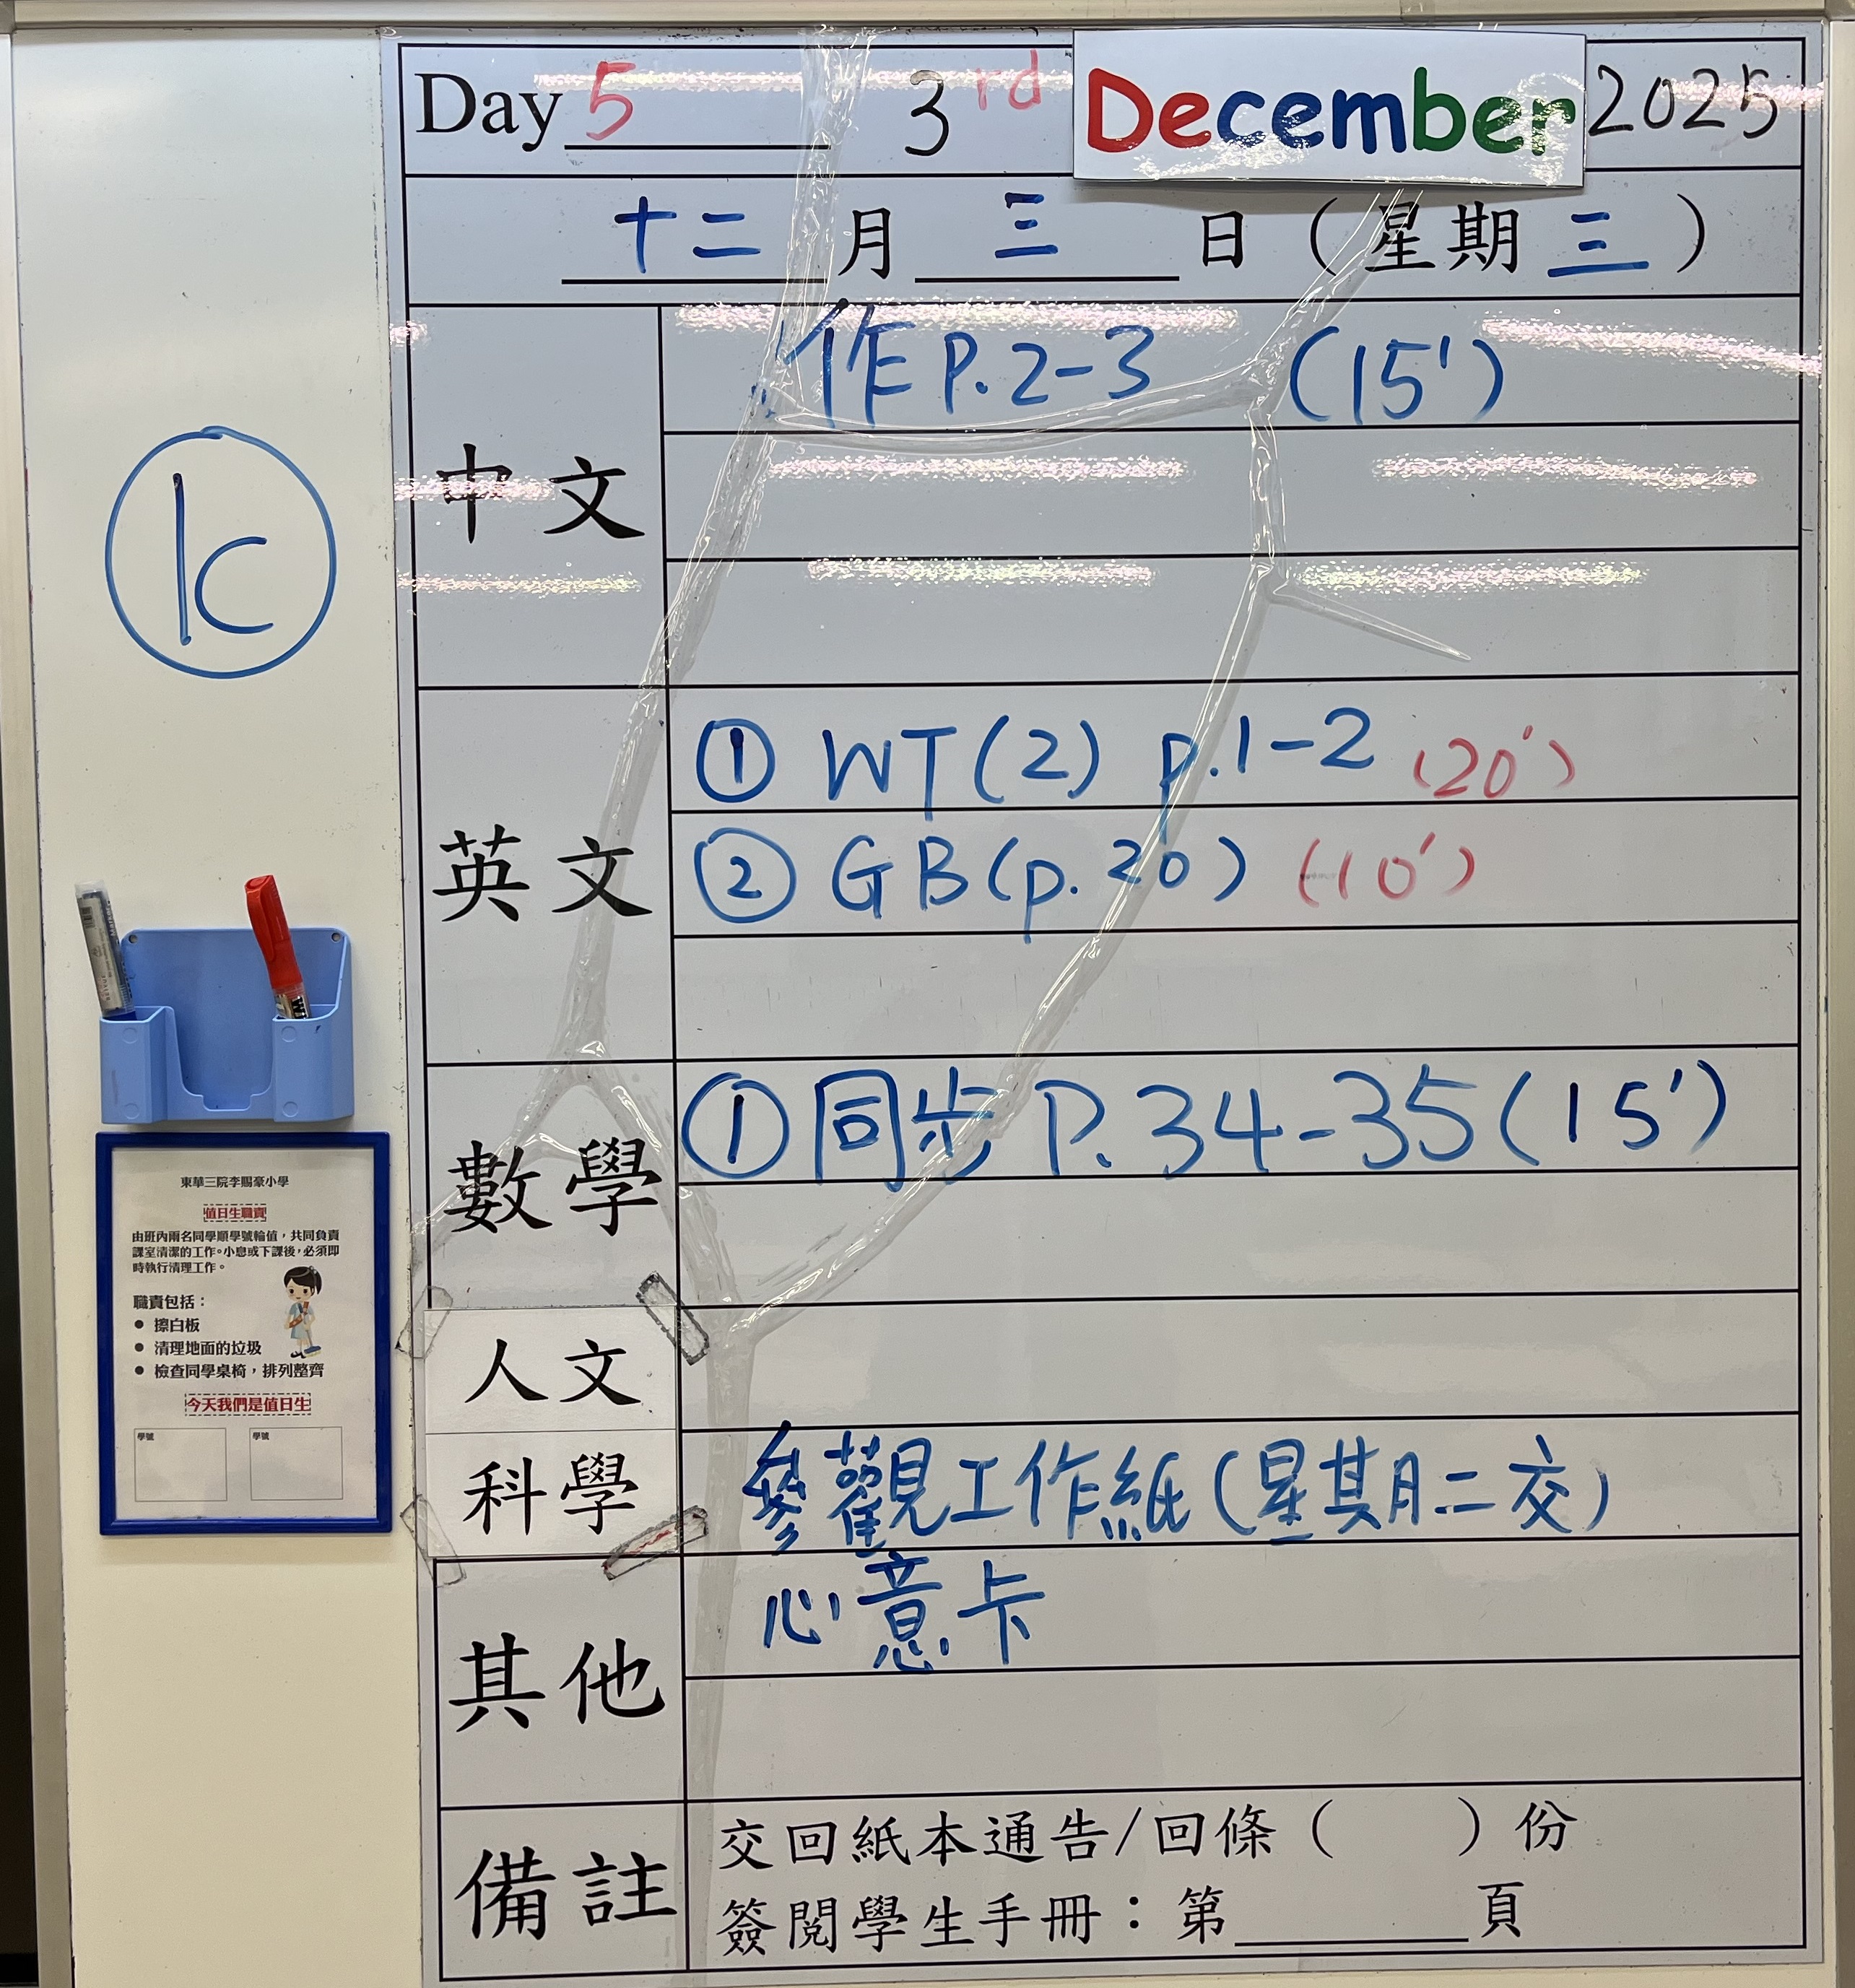 Day 5 3rd December 2025
十二月三日（星期三）
1c
中文
作P.2-3 (15')
英文
① WT(2) p.1-2 (20')
② GB(p.20) (10')
數學
① 同步P.34-35(15')
人文
科學
參觀工作紙(星期二交)
其他
心意卡
備註
交回紙本通告/回條（　）份
簽閱學生手冊：第______頁
東華三院李賜豪小學
值日生職責
由班內兩名同學順學號輪值，共同負責
課室清潔的工作。小息或下課後，必須即
時執行清理工作。
職責包括：
● 擦白板
● 清理地面的垃圾
● 檢查同學桌椅，排列整齊
今天我們是值日生
學號 學號